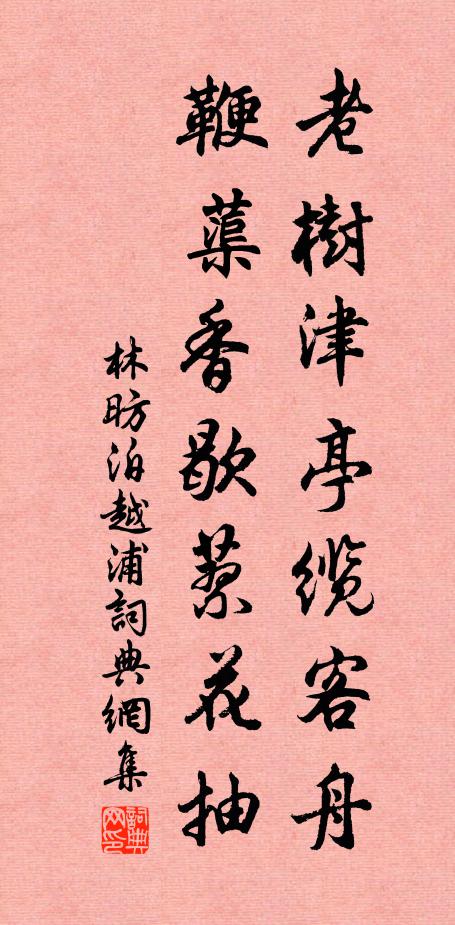 老樹津亭缆客舟
鞭蕖香歇蓼花抽
林昉泊越浦詞典網集
詞典网印